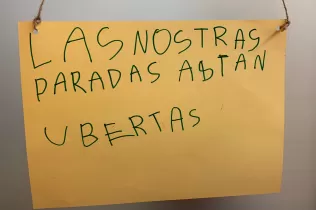 LAS NOSTRAS
PARADAS ASTAN
UBERTAS